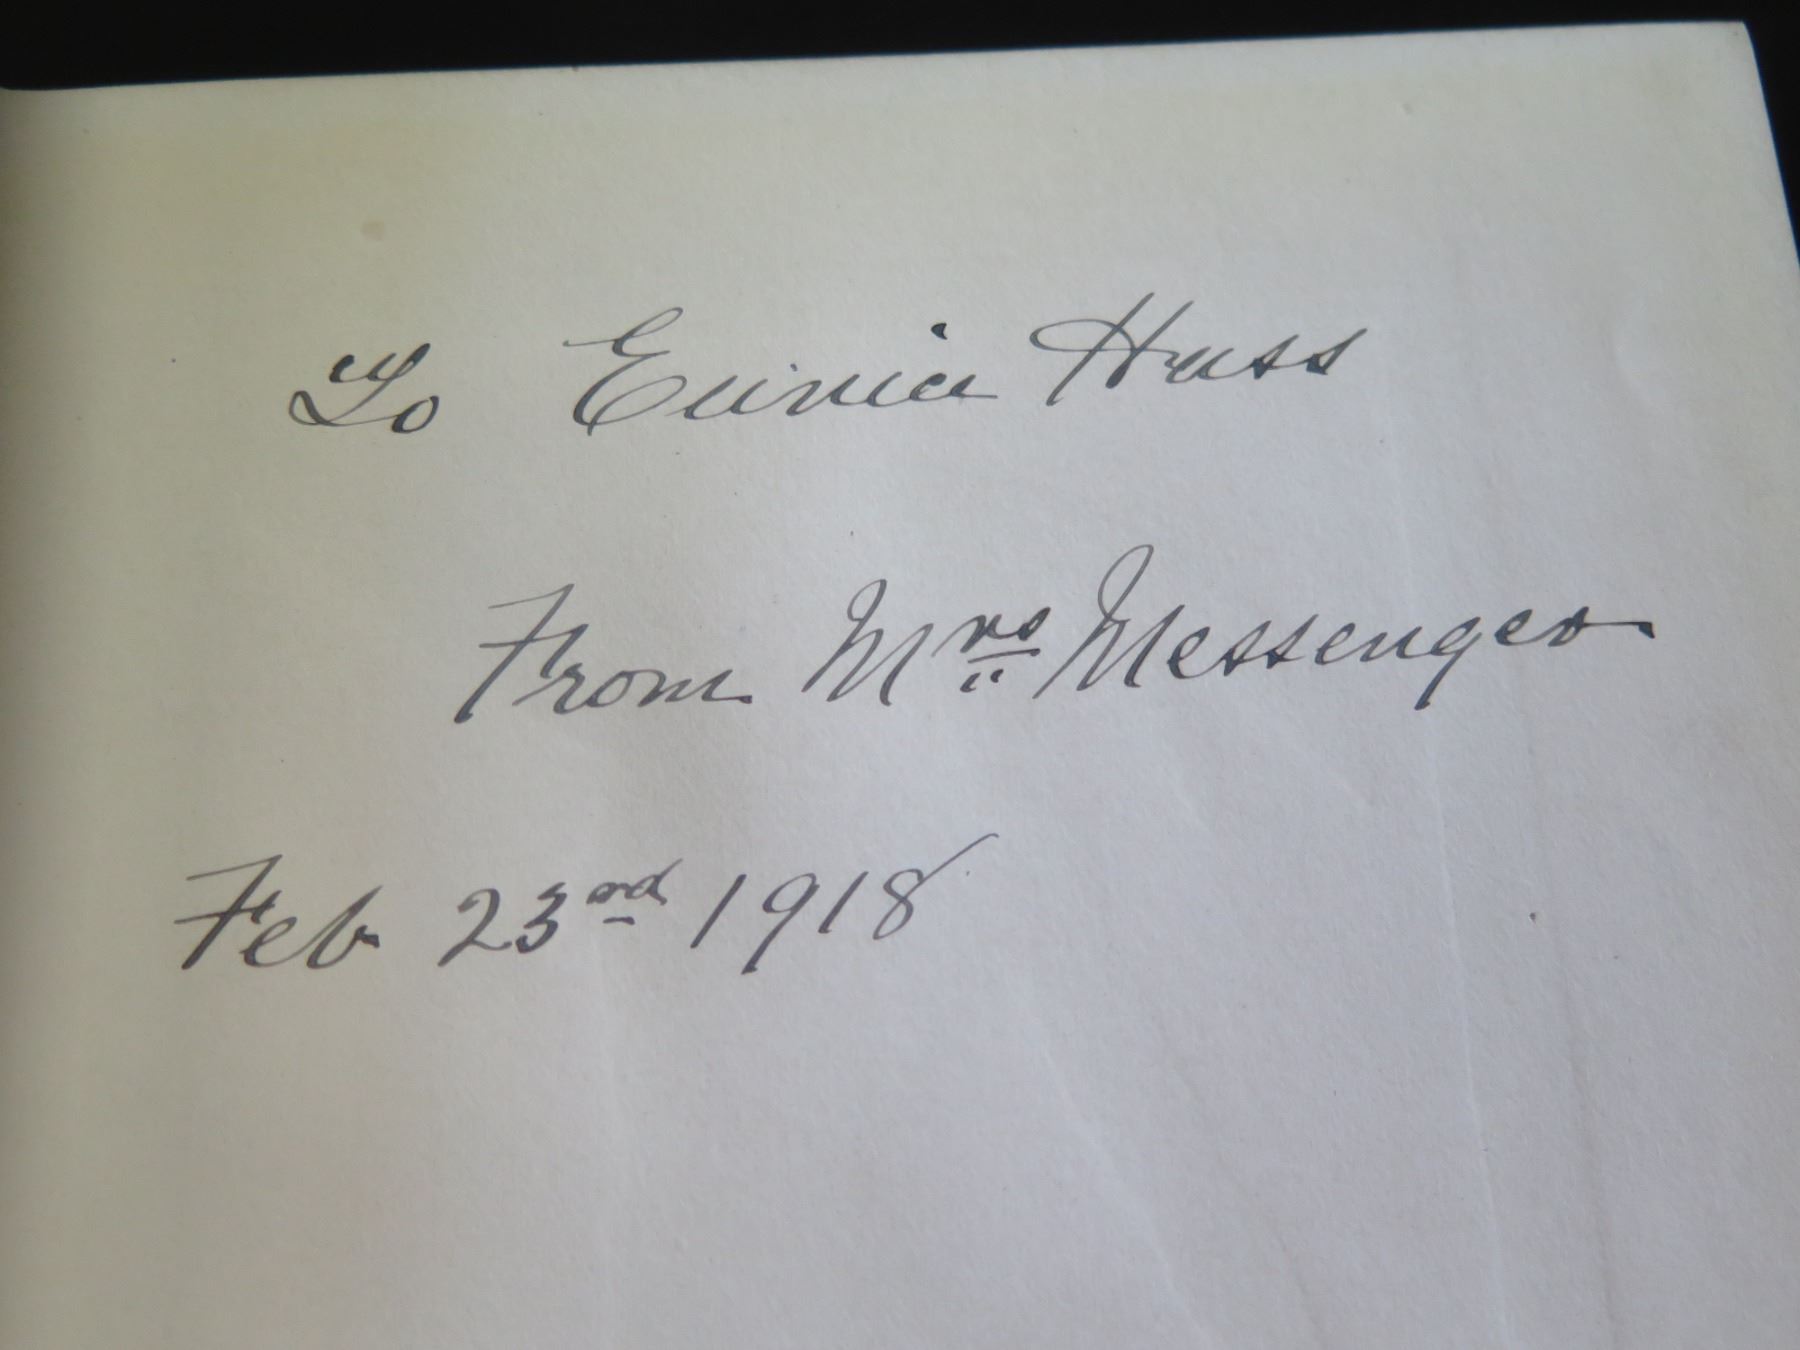 To Eunice Huss
From Mrs Messenger
Feb 23rd 1918